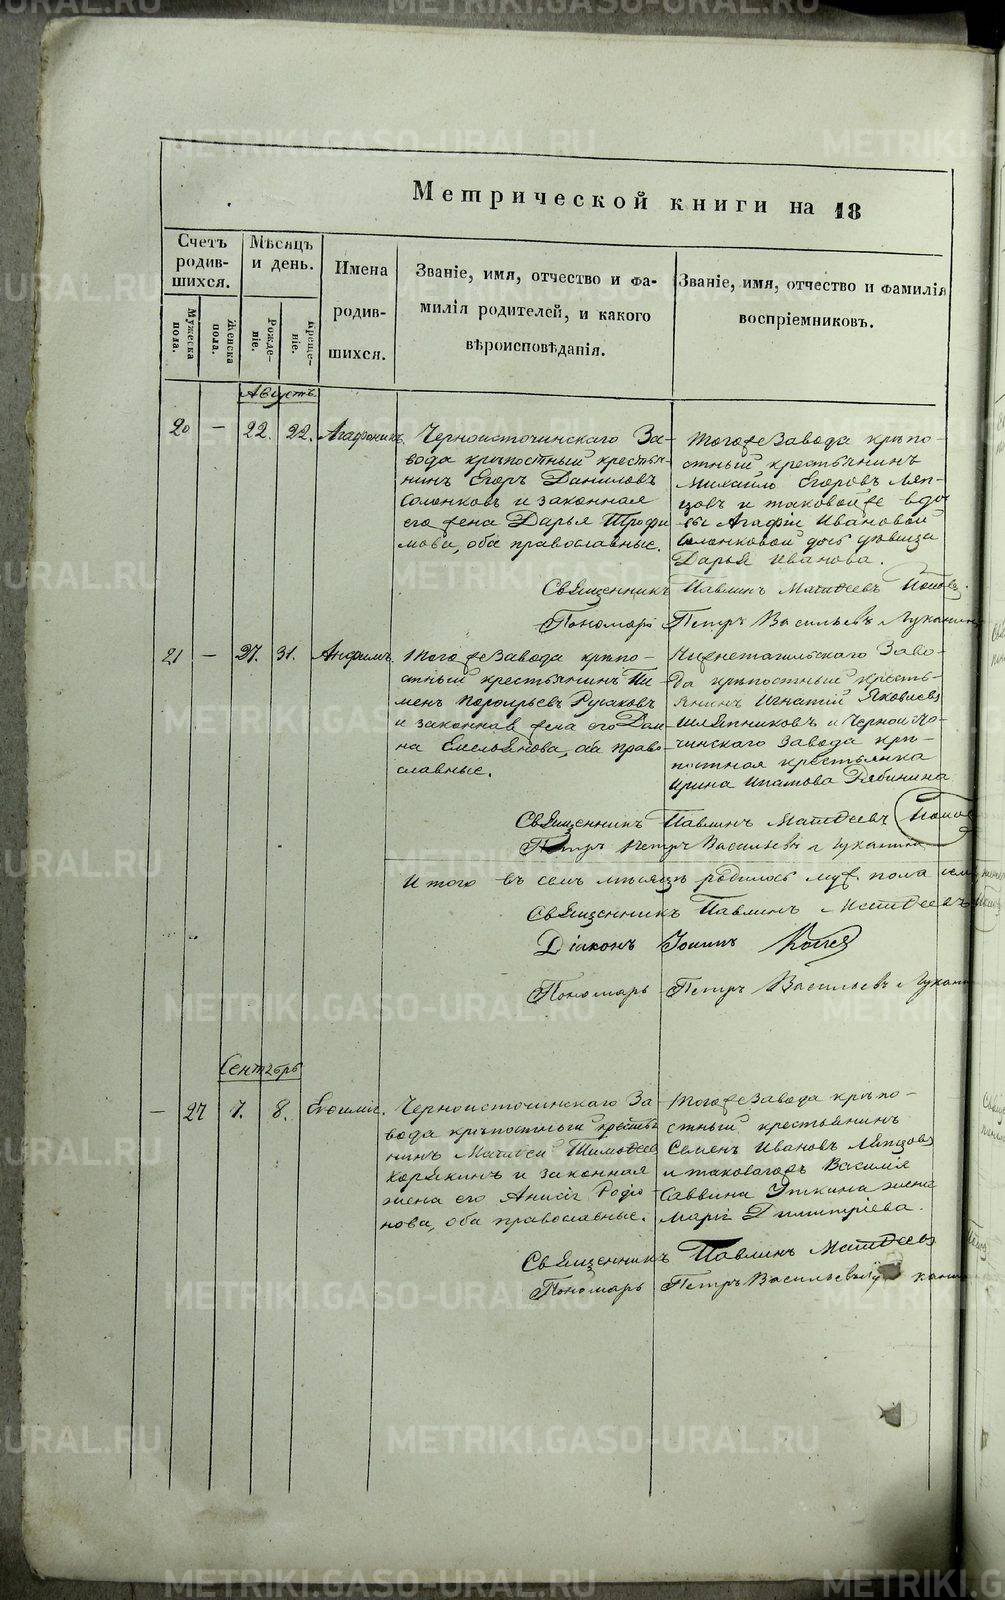 METRIKI.GASO-URAL.RU
Метрической книги на 18
Счетъ родив-шихся.
Мужеска пола.
Женска пола.
Мѣсяцъ и день.
Рожде-ніе.
Креще-ніе.
Имена родив-шихся.
Званіе, имя, отчество и фа-
милія родителей, и какого
вѣроисповѣданія.
Званіе, имя, отчество и фамилія
воспріемниковъ.
Августъ
20 — 22. 22. Агафоникъ
Черноисточинскаго За-
вода крѣпостный крестья-
нинъ Егоръ Даниловъ
Солонковъ и законная
его жена Дарья Трофи
мова, оба православные.
Тогожъ Завода крѣпо-
стный крестьянинъ
Михайло Егоровъ Ляп-
цовъ и таковойже вдо
вы Агафіи Ивановой
Солонковой дочь дѣвица
Дарья Иванова.
Священникъ Павлинъ Матвеевъ Поповъ.
Пономарь Петръ Васильевъ Луканинъ
21 — 27. 31. Анфимъ.
Тогоже Завода крѣпо-
стный крестьянинъ Пи-
менъ Порфирьевъ Русаковъ
и законная жена его Дом
на Емельянова, оба право-
славные.
Нижнетагильскаго Заво-
да крѣпостный кресть-
янинъ Игнатій Яковлевъ
Шляпниковъ и Черноисто-
чинскаго Завода крѣ-
постная крестьянка
Ирина Ипатова Рябинина
Священникъ Павлинъ Матвеевъ Поповъ
Петръ Васильевъ Луканинъ
Итого въ семъ мѣсяцѣ родилось муж. пола семь
Священникъ Павлинъ Матвеевъ
Діаконъ Іоаннъ
Пономарь Петръ Васильевъ Луканинъ
Сентябрь
— 27 7. 8. Евфимія.
Черноисточинскаго За-
вода крѣпостный крестья
нинъ Матвей Тимофеевъ
Корякинъ и законная
жена его Анисія Родіо
нова, оба православные.
Тогоже Завода крѣпо-
стный крестьянинъ
Семенъ Ивановъ Ляпцовъ
и таковагожъ Василія
Саввина Уткина жена
Марія Димитріева.
Священникъ Павлинъ Матвеевъ
Пономарь Петръ Васильевъ Луканинъ